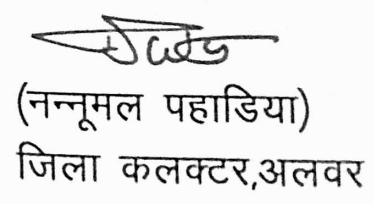 (नन्नूमल पहाडिया)
जिला कलक्टर,अलवर